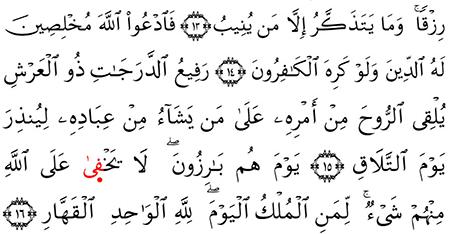 رِزْقًاۚ وَمَا يَتَذَكَّرُ إِلَّا مَن يُنِيبُ ١٣ فَٱدْعُوا۟ ٱللَّهَ مُخْلِصِينَ
لَهُ ٱلدِّينَ وَلَوْ كَرِهَ ٱلْكَٰفِرُونَ ١٤ رَفِيعُ ٱلدَّرَجَٰتِ ذُو ٱلْعَرْشِ
يُلْقِى ٱلرُّوحَ مِنْ أَمْرِهِۦ عَلَىٰ مَن يَشَآءُ مِنْ عِبَادِهِۦ لِيُنذِرَ
يَوْمَ ٱلتَّلَاقِ ١٥ يَوْمَ هُم بَٰرِزُونَۖ لَا يَخْفِىٰ عَلَى ٱللَّهِ
مِنْهُمْ شَىْءٌۚ لِّمَنِ ٱلْمُلْكُ ٱلْيَوْمَۖ لِلَّهِ ٱلْوَٰحِدِ ٱلْقَهَّارِ ١٦